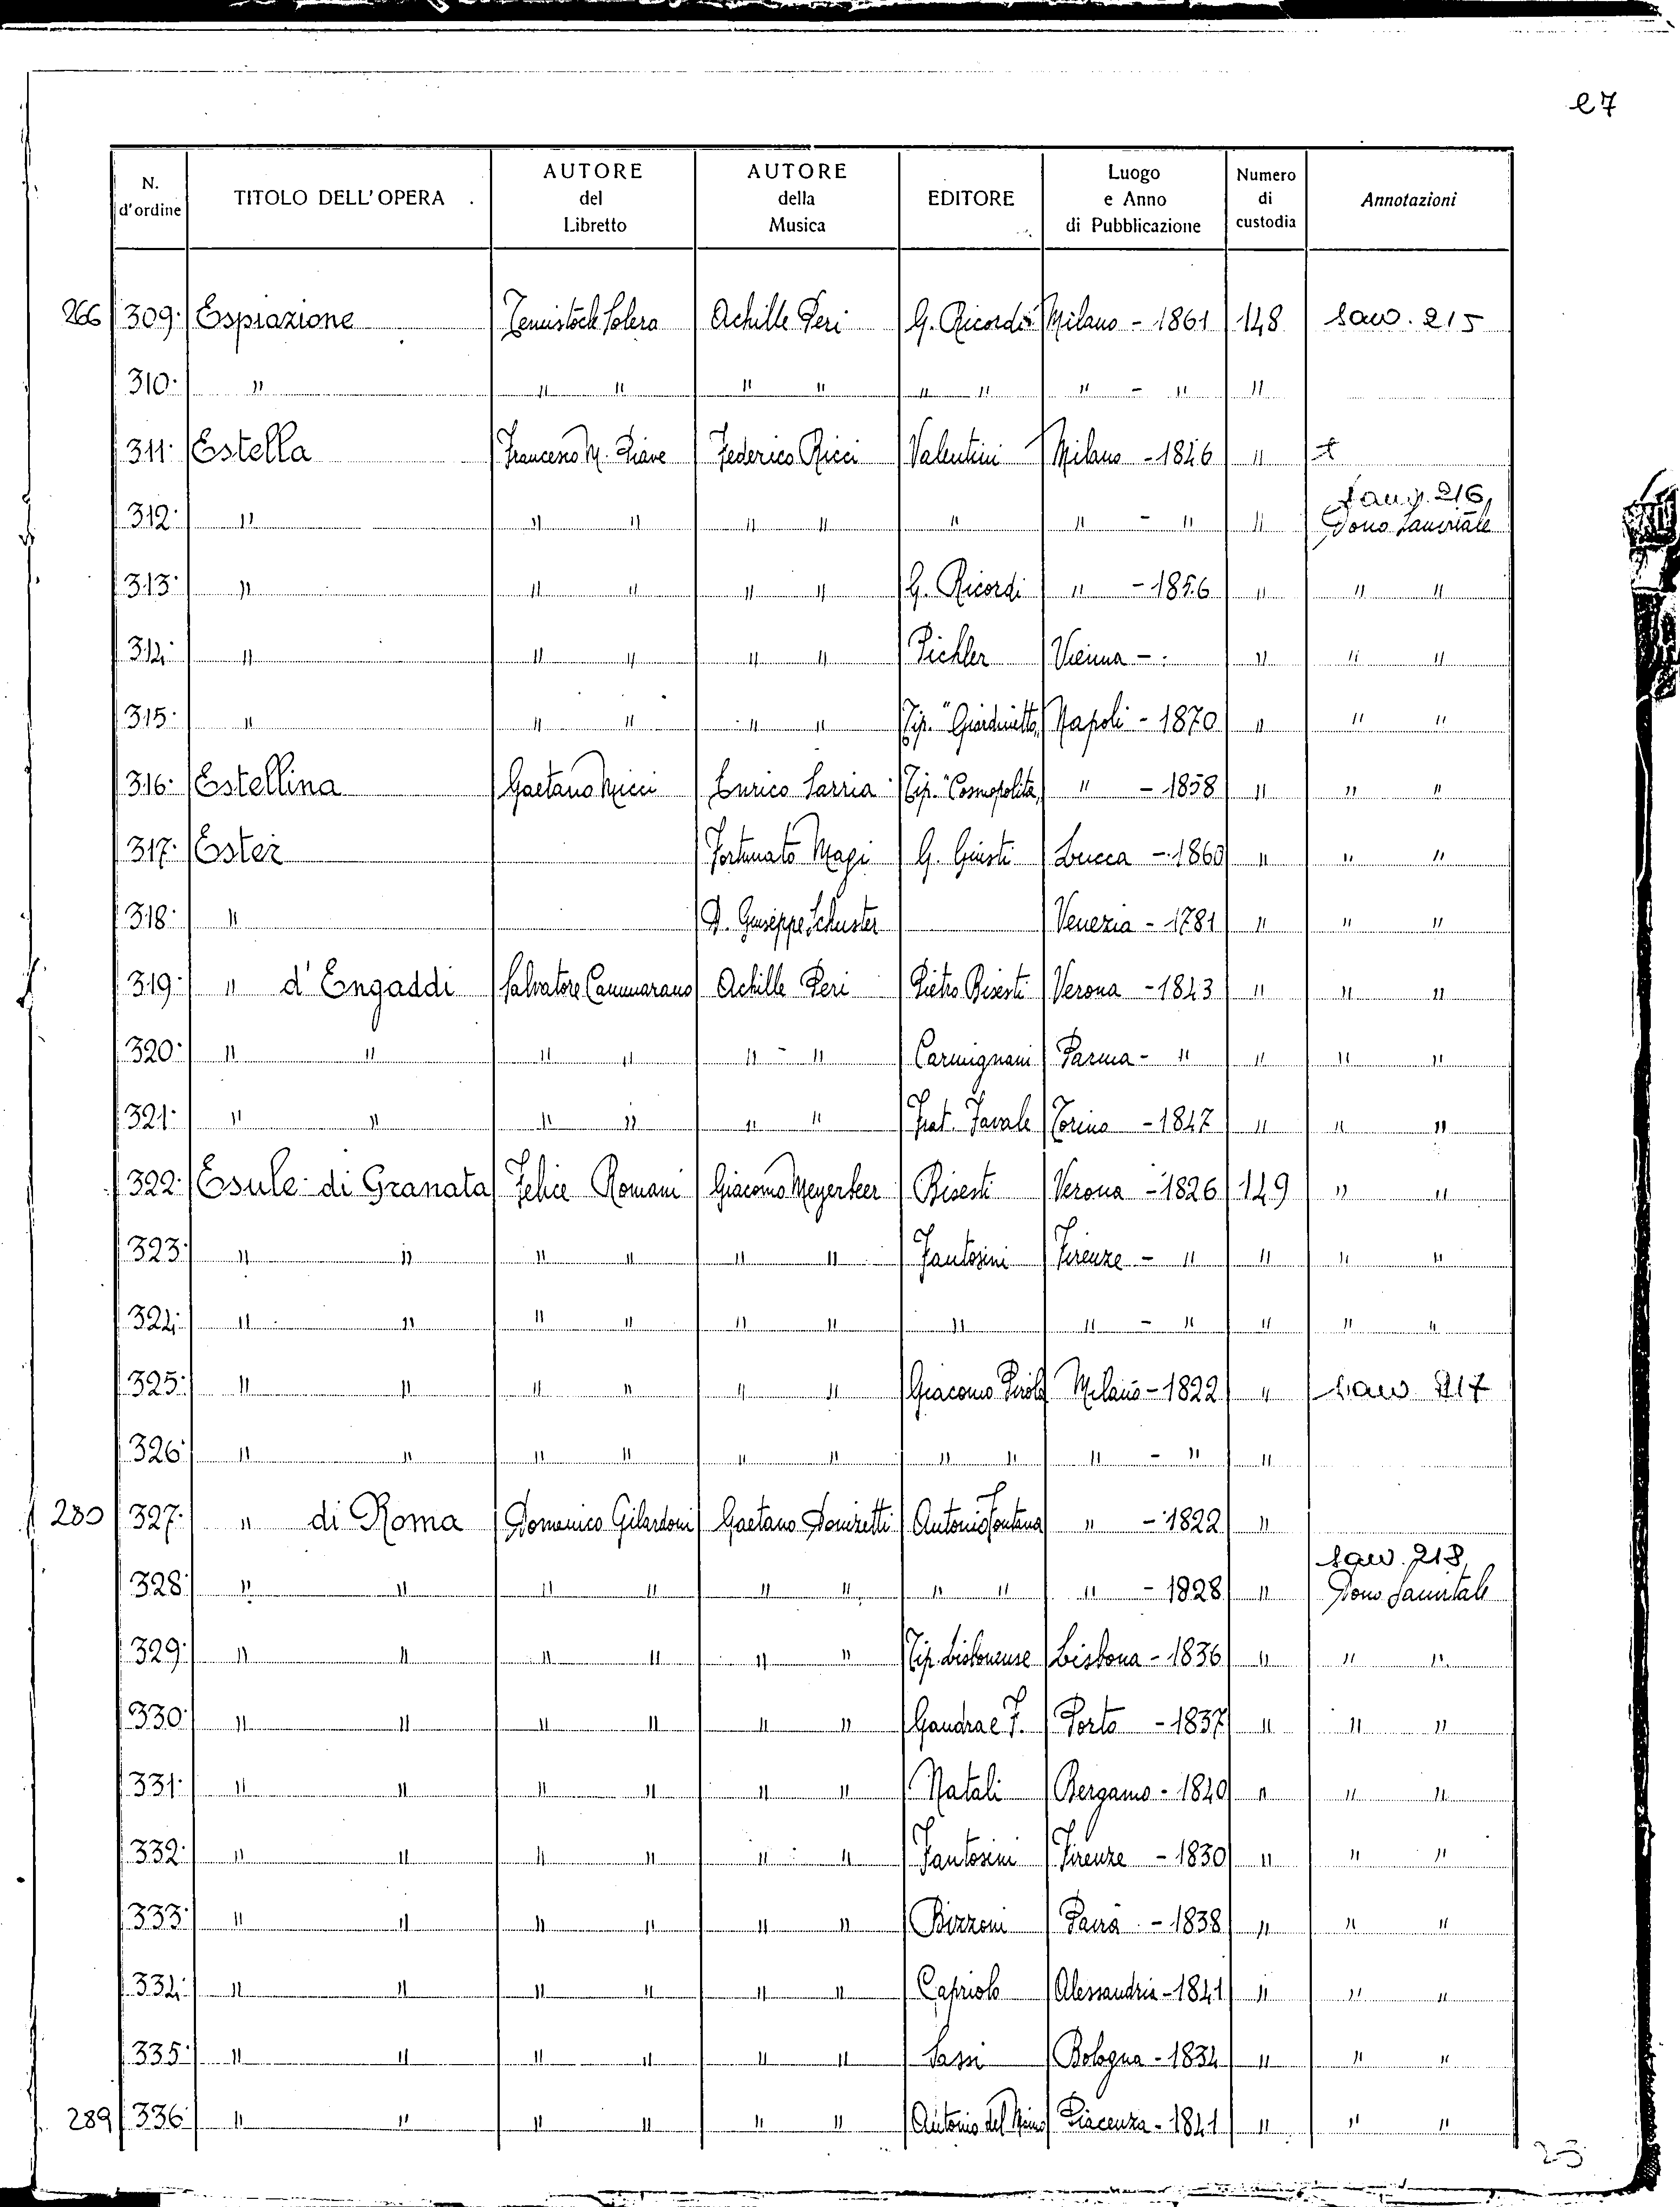 27
N. d'ordine TITOLO DELL'OPERA AUTORE del Libretto AUTORE della Musica EDITORE Luogo e Anno di Pubblicazione Numero di custodia Annotazioni
266 309· Espiazione Temistocle Solera Achille Peri G. Ricordi Milano - 1861 148 Sanv. 215
310· " " " " " " " " - " "
311· Estella Francesco M. Piave Federico Ricci Valentini Milano - 1846 "
Sanv. 216,
312· " " " " " " " - " " Dono Sanvitale
313· " " " " " G. Ricordi " - 1856 " " "
314· " " " " " Pichler Vienna - " " "
315· " " " " " Tip. "Giardinetto" Napoli - 1870 " " "
316· Estellina Gaetano Micci Enrico Sarria Tip. "Cosmopolita" " - 1858 " " "
317· Ester Fortunato Magi G. Giusti Lucca - 1860 " " "
318· " D. Giuseppe Schuster Venezia - 1781 " " "
319· " d'Engaddi Salvatore Cammarano Achille Peri Pietro Bisesti Verona - 1843 " " "
320· " " " " " - " Carmignani Parma - " " " "
321· " " " " " " Frat. Favale Torino - 1847 " " "
322· Esule di Granata Felice Romani Giacomo Meyerbeer Bisesti Verona - 1826 149 " "
323· " " " " " " Fantosini Firenze - " " " "
324· " " " " " " " " - " " " "
325· " " " " " " Giacomo Pirola Milano - 1822 " Sanv. 217
326· " " " " " " " " " - " "
280 327· " di Roma Domenico Gilardoni Gaetano Donizetti Antonio Fontana " - 1822 "
Sanv. 218,
328· " " " " " " " " " - 1828 " Dono Sanvitale
329· " " " " " " Tip. Lisbonense Lisbona - 1836 " " "
330· " " " " " " Gandra e F. Porto - 1837 " " "
331· " " " " " " Natali Bergamo - 1840 " " "
332· " " " " " " Fantosini Firenze - 1830 " " "
333· " " " " " " Bizzoni Pavia - 1838 " " "
334· " " " " " " Capriolo Alessandria - 1841 " " "
335· " " " " " " Sassi Bologna - 1834 " " "
289 336· " " " " " " Antonio del Maino Piacenza - 1841 " " "